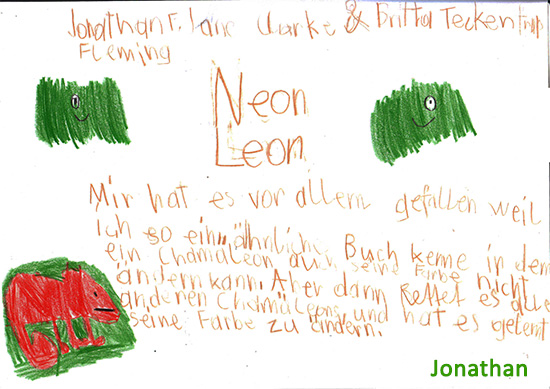 Jonathan F. Jane Clarke & Britta Teckentrup
Fleming
Neon
Leon
Mir hat es vor allem gefallen weil
Ich so ein ähnliches Buch kenne in dem
ein Chamäleon auch seine Farbe nicht
ändern kann. Aber dann Rettet es alle
anderen Chamäleons und hat es gelernt
seine Farbe zu ändern.
Jonathan